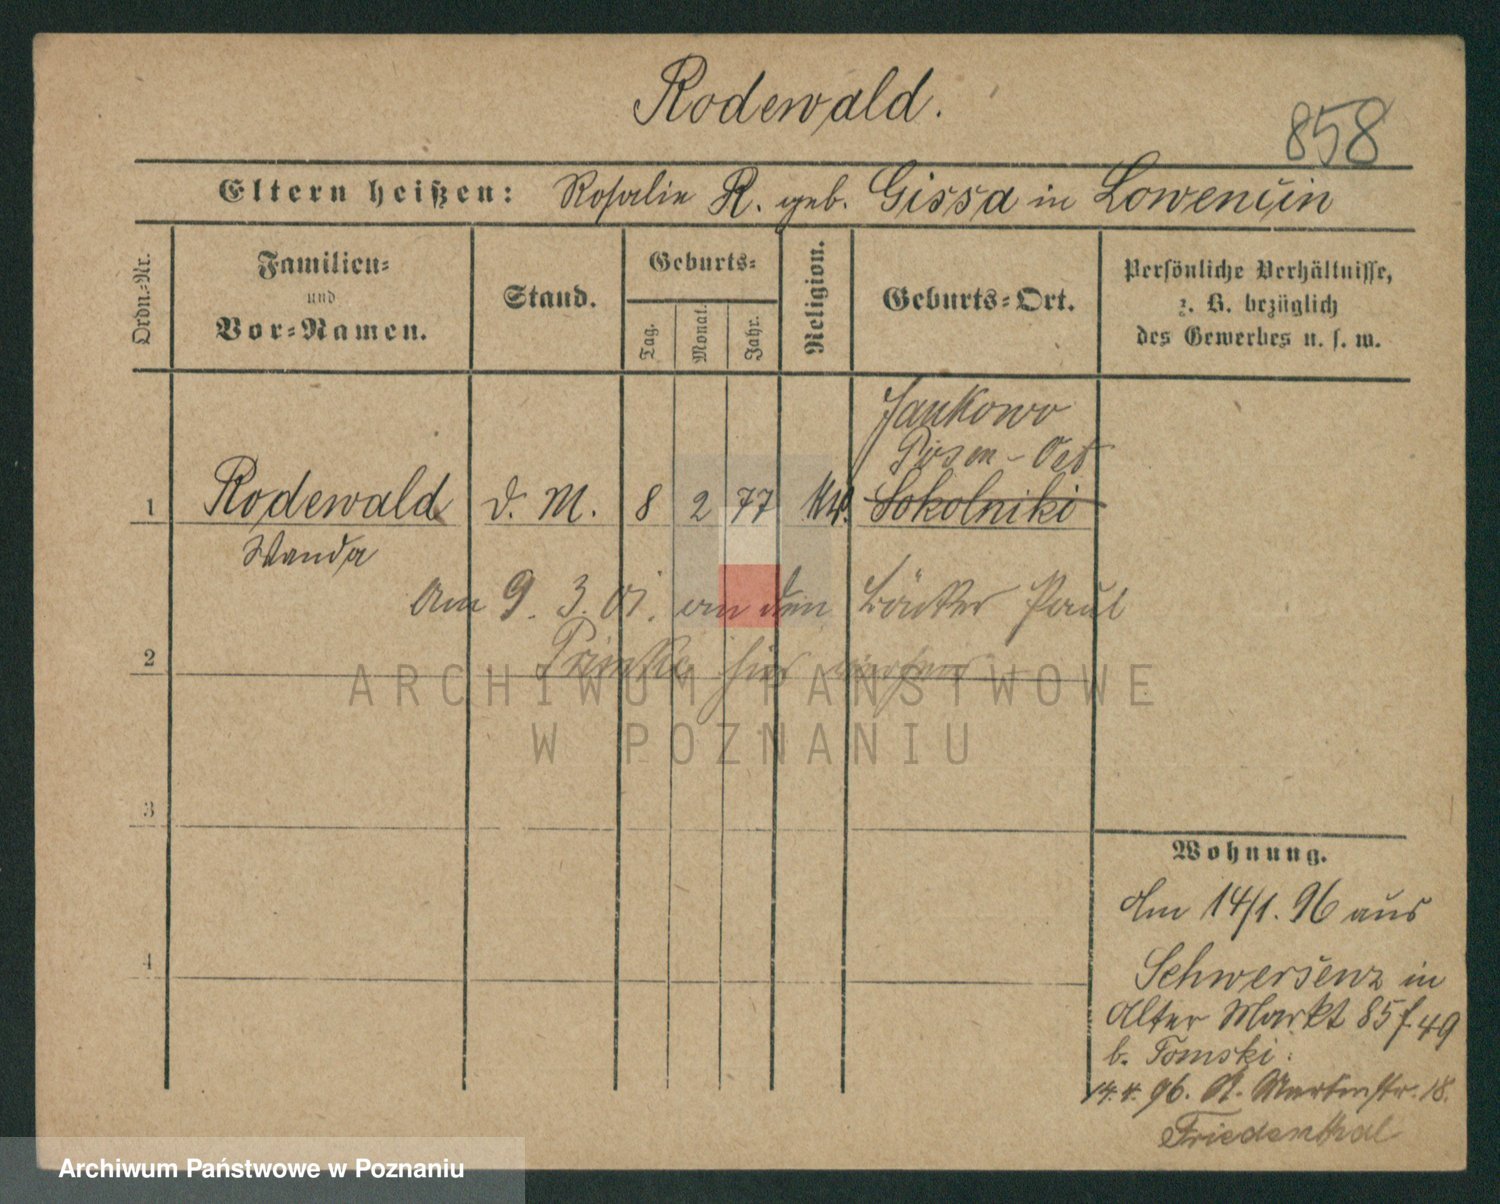 Rodewald.
858
Eltern heißen: Rosalie R. geb. Gissa in Lowencin
Ordn.-Nr.
Familien-
und
Vor-Namen.
Stand.
Geburts-
Tag.
Monat.
Jahr.
Religion.
Geburts-Ort.
Persönliche Verhältnisse,
z. B. bezüglich
des Gewerbes u. s. w.
Jankowo
Posen - Ost
1 Rodewald d. M. 8 2 77 kt. Sokolniki
Wanda
Am 9. 3. 01. an den Bäcker Paul
2 hier
ARCHIWUM PAŃSTWOWE
W POZNANIU
3
4
Wohnung.
Am 14/1. 96 aus
Schwersenz in
Alter Markt 85 f. 49
b. Tomski.
14. 4. 96. St. Martinstr. 18.
Friedenthal
Archiwum Państwowe w Poznaniu